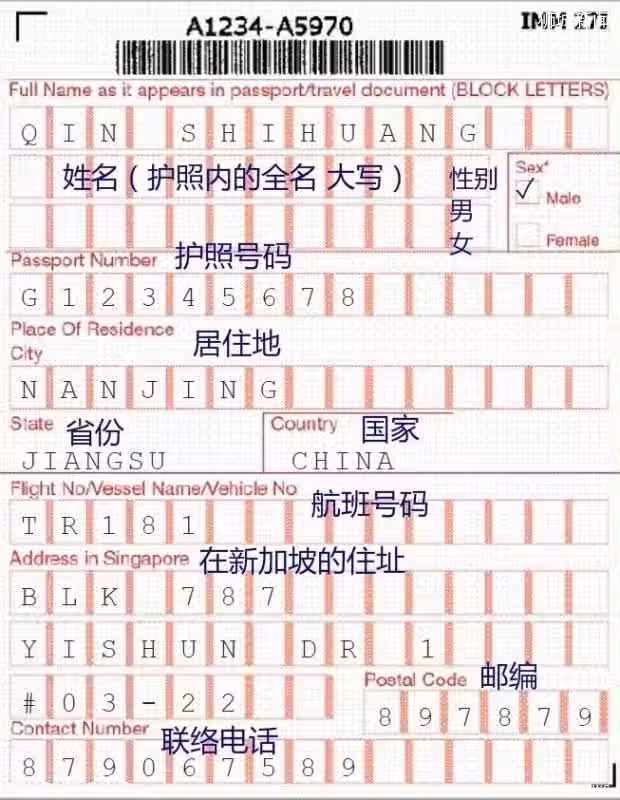 A1234-A5970
Full Name as it appears in passport/travel document (BLOCK LETTERS)
QIN SHIHUANG
姓名（护照内的全名 大写）
性别
男
女
Sex*
✓ Male
Female
Passport Number 护照号码
G12345678
Place Of Residence 居住地
City
NANJING
State 省份
JIANGSU
Country 国家
CHINA
Flight No/Vessel Name/Vehicle No 航班号码
TR181
Address in Singapore 在新加坡的住址
BLK 787
YISHUN DR 1
#03-22
Postal Code 邮编
897879
Contact Number 联络电话
879067589